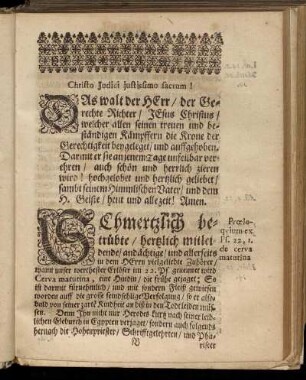 Christo Judici justissimo sacrum!
DAs walt der HErr/ der Ge-
rechte Richter/ JEsus Christus/
welcher allen seinen treuen und be-
ständigen Kämpffern die Krone der
Gerechtigkeit beygeleget/ und auffgehoben,
Darmit er sie an jenem Tage unfeilbar ver-
ehren/ auch schön und herrlich zieren
wird/ hochgelobet und hertzlich geliebet/
sambt seinem Himmlischen Vater/ und dem
H. Geiste/ heut und allezeit! Amen.
SChmertzlich be-
trübte/ hertzlich mitlei-
dende/ andächtige/ und allerseits
in dem HErrn vielgeliebte Zuhörer/
wann unser werthester Erlöser im 22. Ps. genennet wird
Cerva matutina, eine Hindin/ die frühe gejaget; So
ist darmit fürnehmlich/ und mit sonderm Fleiß gewiesen
worden auff die grosse feindselige Verfolgung/ so er also-
bald von seiner zarte Kindheit an biß in den Tod leiden müs-
sen. Denn Ihn nicht nur Herodes kurtz nach seiner leid-
lichen Geburth in Egypten verjaget/ sondern auch folgends
hernach die Hohenpriester/ Schrifftgelehrten/ und Pha-
B
risäer
Prœlo-
quium ex
Ps. 22, 1.
de cerva
matutina